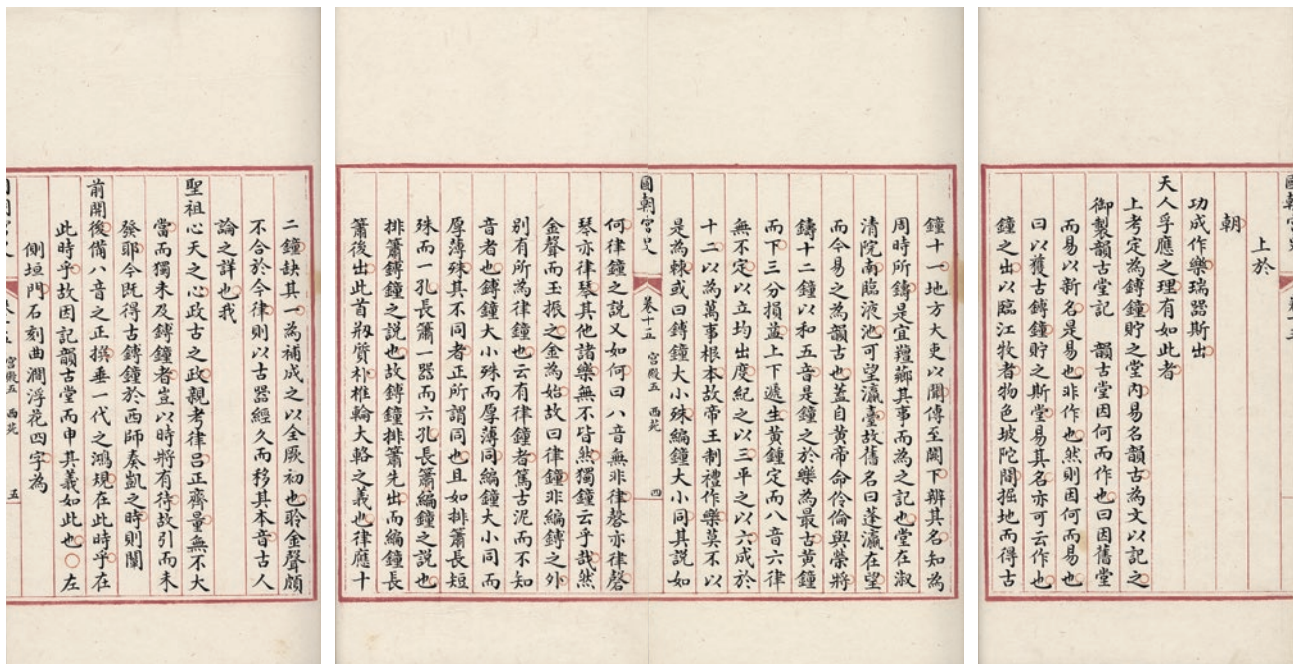 國朝宮史
上於
朝
功成作樂瑞器斯出
天人孚應之理有如此者
上考定為鎛鐘貯之堂內易名韻古為文以記之
御製韻古堂記 韻古堂因何而作也曰因舊堂
而易以新名是易也非作也然則因何而易也
曰以獲古鎛鐘貯之斯堂易其名亦可云作也
鐘之出以臨江牧者物色坡陀間掘地而得古
鐘十一地方大吏以聞傳至闕下辨其名知為
周時所鑄是宜羶薌其事而為之記也堂在淑
清院南臨液池可望瀛臺故舊名曰蓬瀛在望
而今易之為韻古也蓋自黃帝命伶倫與榮將
鑄十二鐘以和五音是鐘之於樂為最古黃鐘
而下三分損益上下遞生黃鐘定而八音六律
無不定以立均出度紀之以三平之以六成於
十二以為萬事根本故帝王制禮作樂莫不以
是為棘或曰鎛鐘大小殊編鐘大小同其說如
國朝宮史 卷十五 宮殿五 西苑 四
何律鐘之說又如何曰八音無非律磬亦律磬
琴亦律琴其他諸樂無不皆然獨鐘云乎哉然
金聲而玉振之金為始故曰律鐘非編鎛之外
別有所為律鐘也云有律鐘者篤古泥而不知
音者也鎛鐘大小殊而厚薄同編鐘大小同而
厚薄殊其不同者正所謂同也且如排簫長短
殊而一孔長簫一器而六孔長簫編鐘之說也
排簫鎛鐘之說也故鎛鐘排簫先出而編鐘長
簫後出此首剏質朴椎輪大輅之義也律應十
二鐘缺其一為補成之以全厥初也聆金聲頗
不合於今律則以古器經久而移其本音古人
論之詳也我
聖祖心天之心政古之政親考律呂正齊量無不大
當而獨未及鎛鐘者豈以時將有待故引而未
發耶今既得古鎛鐘於西師奏凱之時則闡
前開後備八音之正撰垂一代之鴻規在此時乎在
此時乎故因記韻古堂而申其義如此也〇左
側垣門石刻曲澗浮花四字為
宮殿五 西苑 五